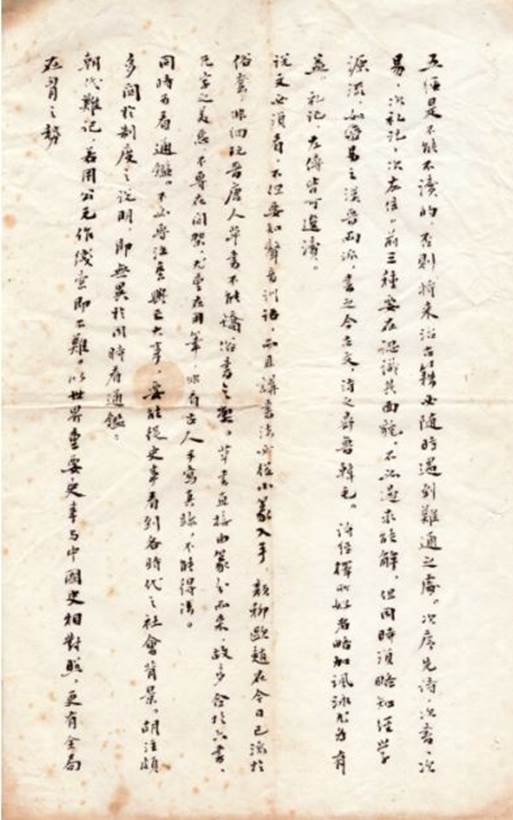 五經是不能不讀的，否則，將來治古籍必隨時遇到難通之處。次序先詩，次書，次
易，次禮記，次左傳。前三種要在認識其面貌，不必過求能解，但同時須略知經學
源流，如易之漢魯兩派，書之今古文，詩之齊魯韓毛。詩經擇所好者略加諷泳尤為有
益，禮記、左傳皆可選讀。
說文必須看，不但要知聲音訓詁，而且講書法必從小篆入手，顏柳歐趙在今日已流於
俗套，非細玩晉唐人草書不能矯俗書之弊。草書直接由篆分而來，故多合於六書。
凡字之美惡不專在間架，尤重在用筆，非看古人手寫真跡，不能得法。
同時可看通鑑。不必專注意興亡大事，要能從史事看到各時代之社會背景。胡注頗
多關於制度之說明，即無異於同時看通鑑。
朝代難記，若用公元作線索即不難。以世界重要史事與中國史相對照，更有全局
在胸之勢